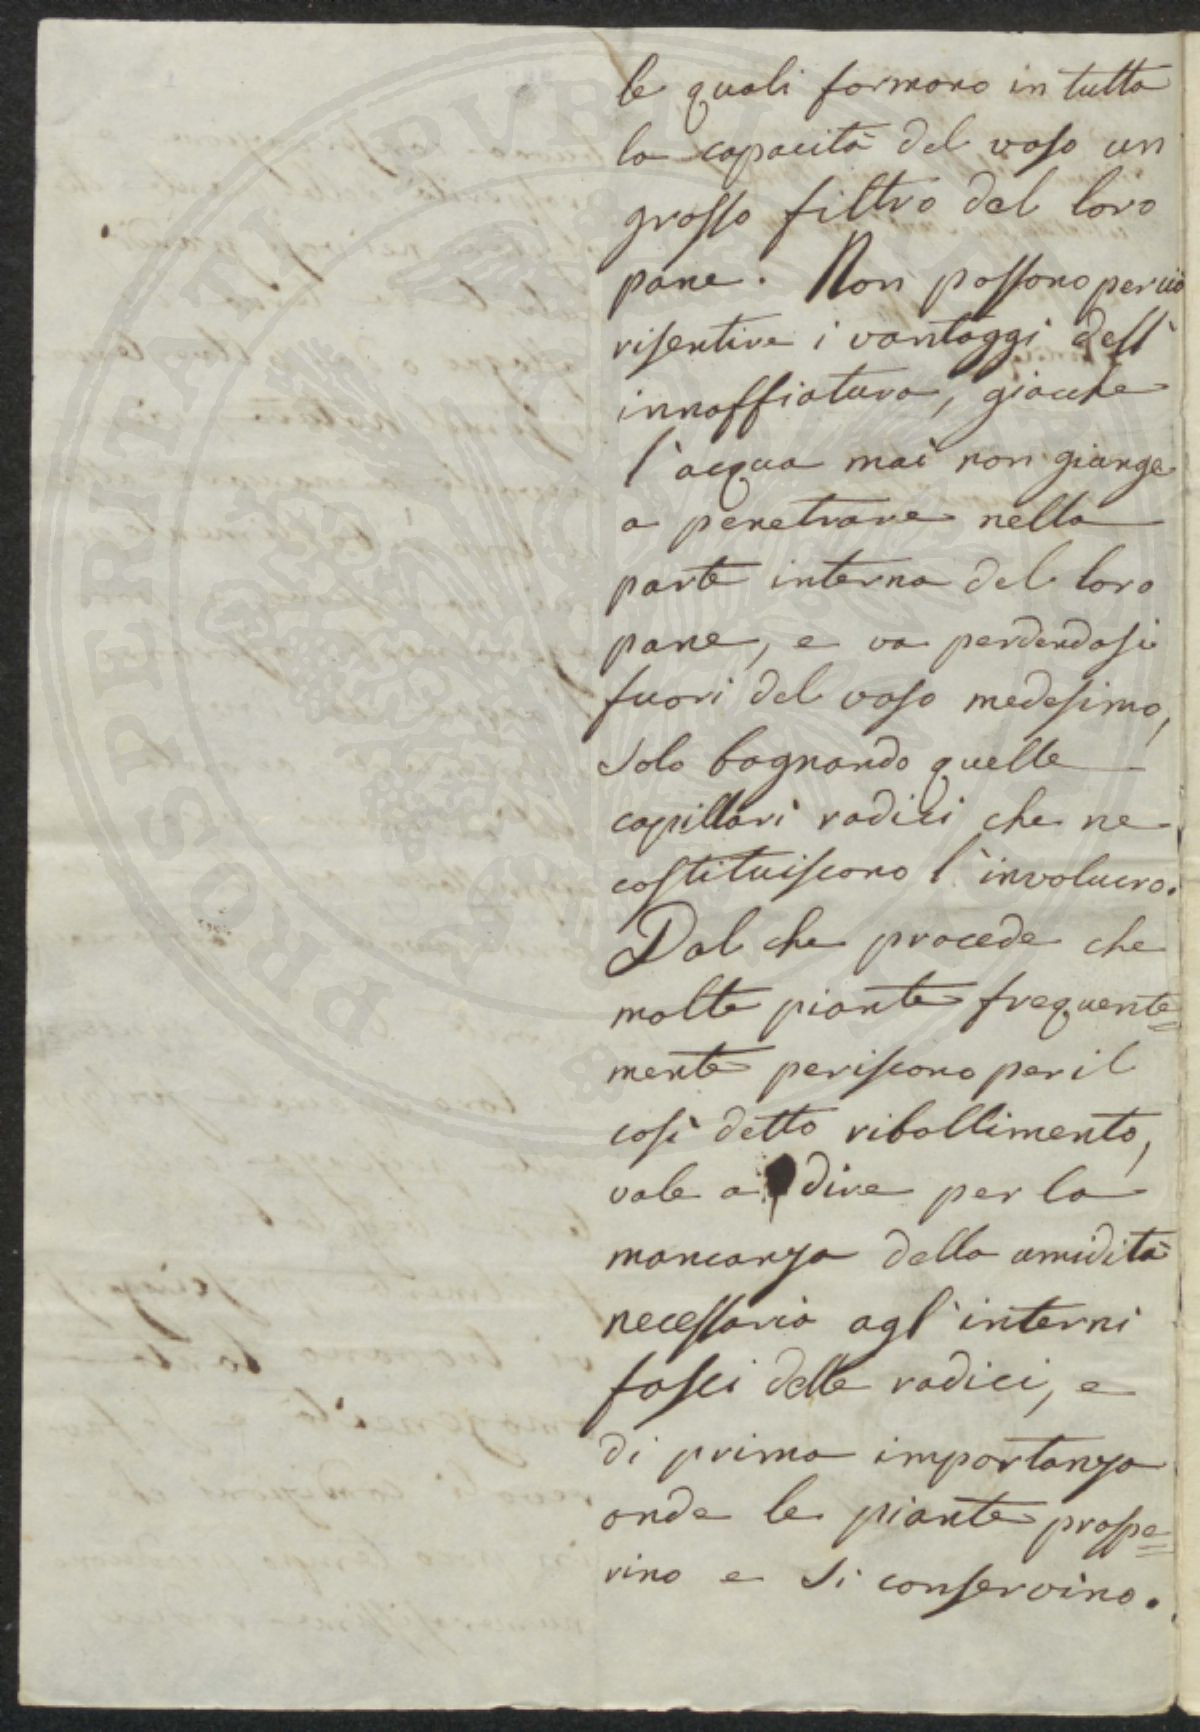 le quali formono in tutta
la capacità del vaso un
grosso filtro del loro
pane. Non possono perciò
risentire i vantaggi dell'
innaffiatura, giacche
l'acqua mai non giunge
a penetrare nella
parte interna del loro
pane, e va perdendosi
fuori del vaso medesimo,
solo bagnando quelle
capillari radici che ne
costituiscono l'involucro.
Dal che procede che
molte piante frequente=
mente periscono per il
così detto ribollimento,
vale a dire per la
mancanza della umidità
necessaria agl'interni
fasci delle radici, e
di prima importanza
onde le piante prospe=
rino e si conservino.
PROSPERITATI PUBLI